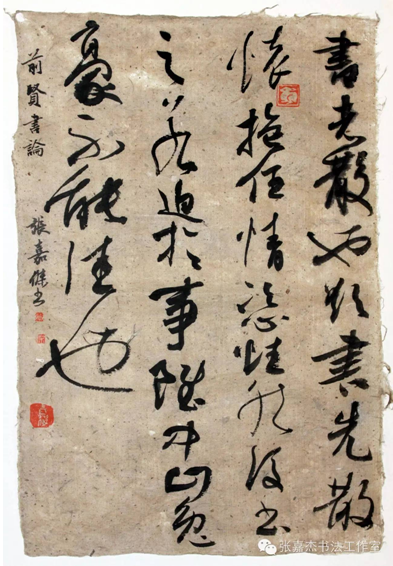 書者散也欲書先散
懷抱任情恣性然後書
之若迫於事雖中山兔
豪不能佳也
前賢書論
張嘉傑書
张嘉杰书法工作室